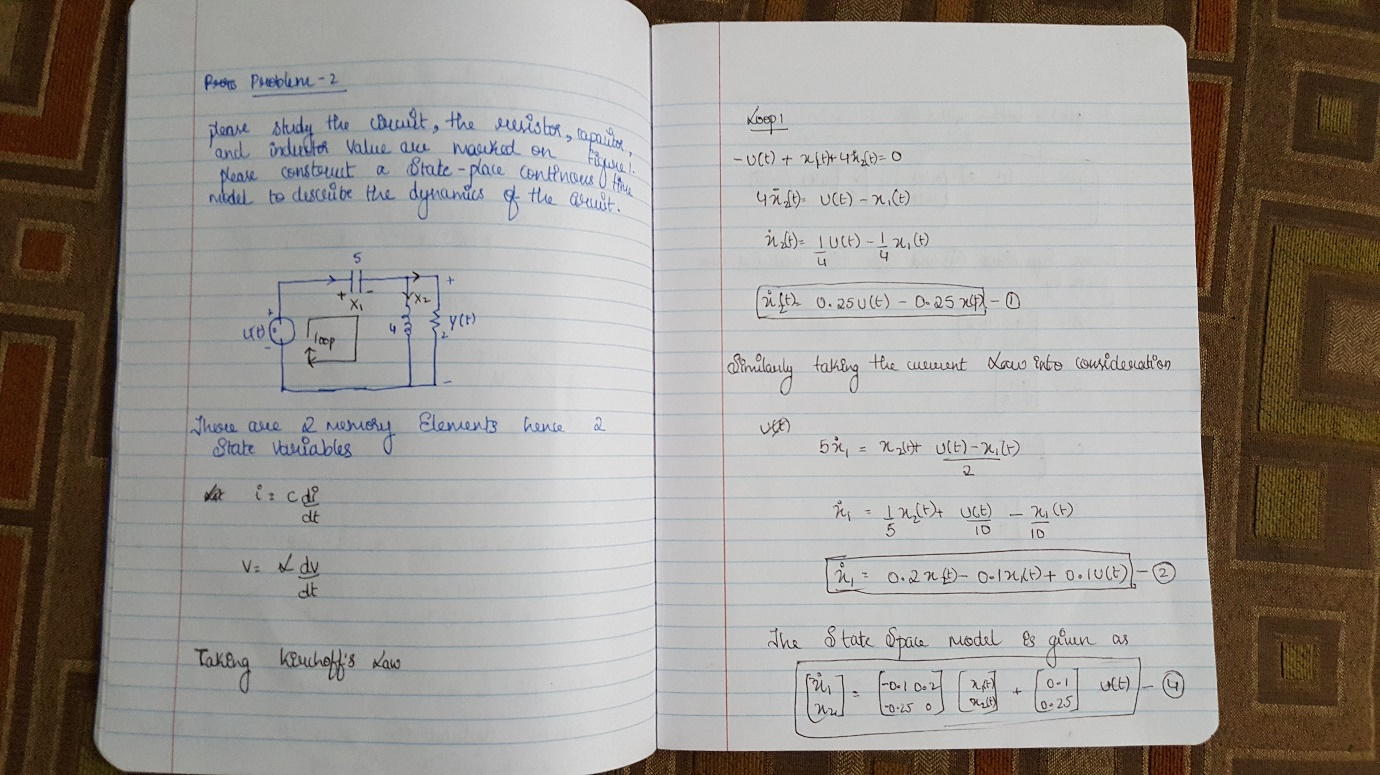 Problem-2
please study the circuit, the resistor, capacitor,
and inductor value are marked on Figure 1.
please construct a State-place continous time
model to describe the dynamics of the circuit.
5
+ X₁ -
X₂
+
U(t)
+
-
loop
4
2
Y(t)
-
There are 2 memory Elements hence 2
State variables
i = C di/dt
V = L dv/dt
Taking kirchoff's Law
Loop 1
-U(t) + x₁(t) + 4ẋ₂(t) = 0
4ẋ₂(t) = U(t) - x₁(t)
ẋ₂(t) = 1/4 U(t) - 1/4 x₁(t)
ẋ₂(t) = 0.25U(t) - 0.25 x₁(t) - ①
Similarly taking the current Law into consideration
5ẋ₁ = x₂(t) + U(t)-x₁(t)/2
ẋ₁ = 1/5 x₂(t) + U(t)/10 - x₁(t)/10
ẋ₁ = 0.2x₂(t) - 0.1x₁(t) + 0.1U(t) - ②
The State Space model is given as
[ẋ₁ x₂] = [-0.1 0.2 -0.25 0] [x₁(t) x₂(t)] + [0.1 0.25] U(t) - ④